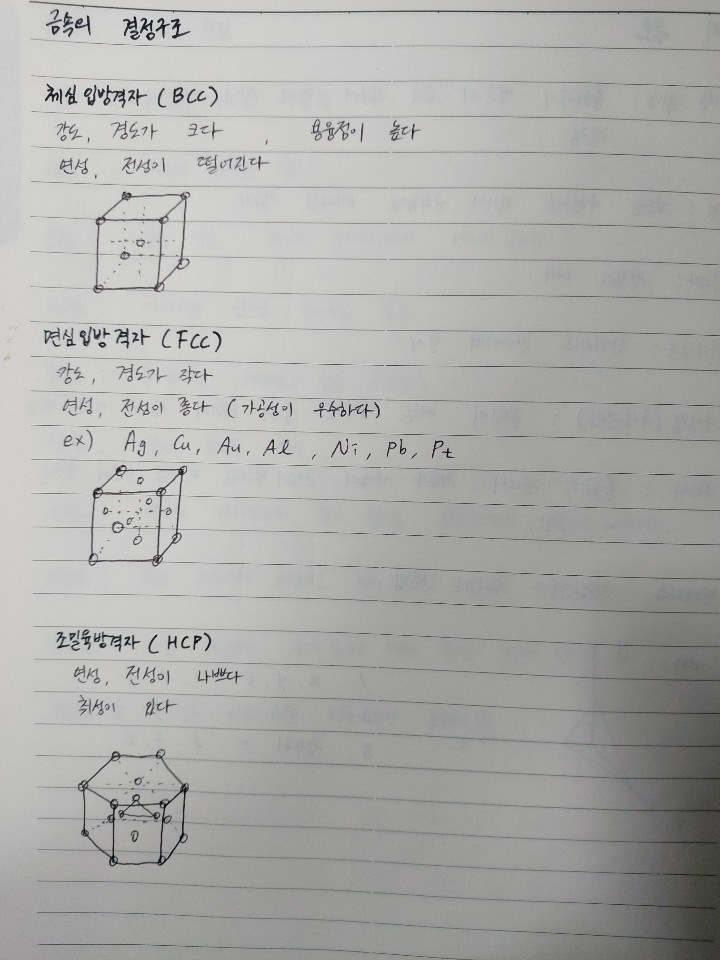 금속의 결정구조
체심입방격자 (BCC)
강도, 경도가 크다 , 용융점이 높다
연성, 전성이 떨어진다
면심입방격자 (FCC)
강도, 경도가 작다
연성, 전성이 좋다 (가공성이 우수하다)
ex) Ag, Cu, Au, Al , Ni, Pb, Pt
조밀육방격자 (HCP)
연성, 전성이 나쁘다
취성이 있다